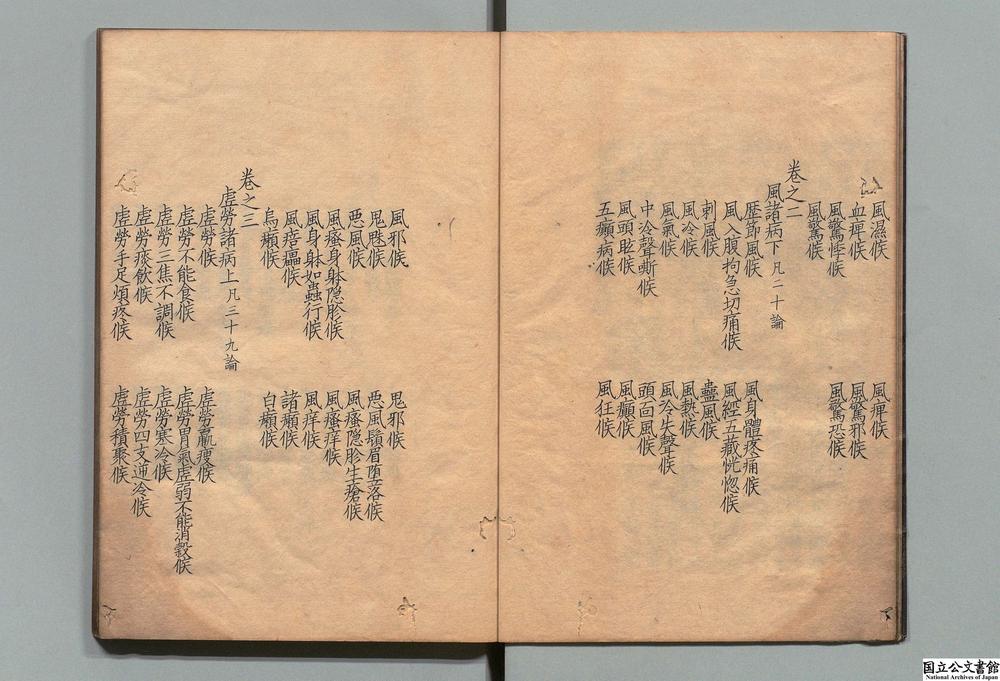 風濕候
風痺候
血痺候
風驚邪候
風驚悸候
風驚恐候
風驚候
卷之二
風諸病下 凡二十論
歷節風候
風身體疼痛候
風入腹拘急切痛候
風經五藏恍惚候
刺風候
蠱風候
風冷候
風熱候
風氣候
風冷失聲候
中冷聲嘶候
頭面風候
風頭眩候
風癲候
五癲病候
風狂候
風邪候
鬼邪候
鬼魅候
惡風鬚眉墮落候
惡風候
風瘙隱胗生瘡候
風瘙身躰隱胗候
風瘙痒候
風身躰如蟲行候
風痒候
風痦㿔候
諸癩候
烏癩候
白癩候
卷之三
虛勞諸病上 凡三十九論
虛勞候
虛勞羸瘦候
虛勞不能食候
虛勞胃氣虛弱不能消穀候
虛勞三焦不調候
虛勞寒冷候
虛勞痰飲候
虛勞四支逆冷候
虛勞手足煩疼候
虛勞積聚候
国立公文書館
National Archives of Japan